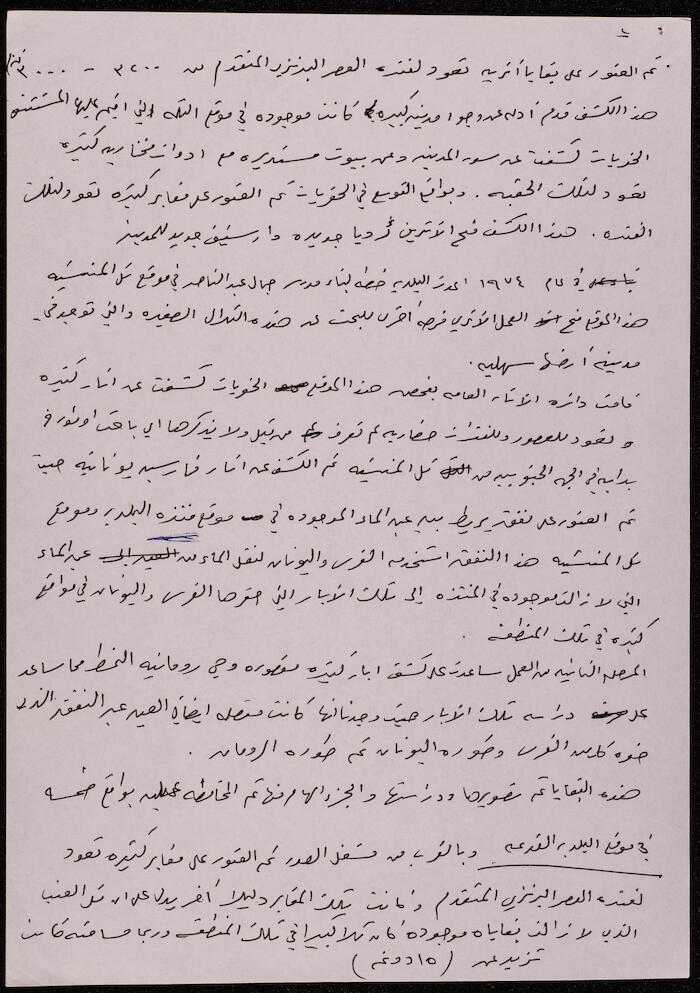 ٦
تم العثور على بقايا أثريه تعود لفتره العصر البرنزي المتقدم من ٣٢٠٠ - ٣٠٠٠
هذا الكشف قدم أدله عن وجود مدينه كبيره كانت موجوده في موقع التله التي اقيم عليها المستشفى
الحفريات كشفت عن سور المدينه وعن بيوت مستديره مع ادوات فخاريه كثيره
تعود لتلك الحقبه . وبواقع التوسع في الحفريات تم العثور على مقابر كثيره تعود لتلك
الفتره . هذا الكشف فتح للاثريين رؤيا جديده وارشيف جديد للمدينه
في عام ١٩٧٤ اعدت البلديه خطه لبناء مدرسه جمال عبد الناصر في موقع تل المنشيه
هذا الموقع منح العمل الاثري فرصه أخرى للبحث عن هذه التلال الصغيره والتي توجد في
مدينه أرضها سهليه .
قامت دائره الاثار العامه بفحص هذا الموقع الحفريات كشفت عن اثار كثيره
وتعود للعصور وللفترات حضاريه لم تعرف من قبل ولا يذكرها اي باحث او مؤرخ
بدايه في الجهه الجنوبيه من تل المنشيه تم الكشف عن اثار فارسيه يونانيه حيث
تم العثور على نفق يربط بين عين الماء الموجوده في موقع منتزه البلديه وموقع
تل المنشيه هذا النفق استخدمه الفرس واليونان لنقل الماء من عين الماء
التي لا زالت موجوده في المنتزه إلى تلك الابار التي حفرها الفرس واليونان في مواقع
كثيره في تلك المنطقه .
المرحله الثانيه من العمل ساعدت على كشف ابار كثيره مقصوره وهي رومانيه النمط مما ساعد
على دراسه تلك الابار حيث وجدنا انها كانت متصله ايضاً في العين عبر النفق الذي
حفره كل من الفرس وطوره اليونان ثم طوره الرومان .
هذه البقايا تم تصويرها ودراستها والجزء الهام منها تم المحافظه عليه بواقع طمسه
في موقع البلديه القديمه وبالقرب من مشغل الصدر تم العثور على مقابر كثيره تعود
لفتره العصر البرنزي المتقدم وكانت تلك المقابر دليلا آخر يدل على ان تل العنب
الذي لا زالت بقاياه موجوده كان تلا كبيرا في تلك المنطقه وربما مساحته كانت
تزيد عن (١٥ دونم)